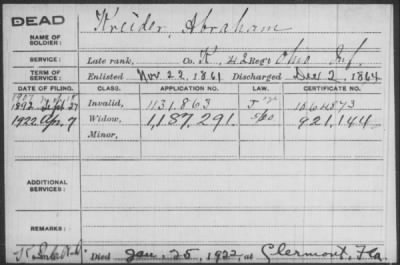 DEAD
NAME OF SOLDIER: Kreider, Abraham
SERVICE: Late rank, Co. K, 42 Reg't Ohio Inf.
TERM OF SERVICE: Enlisted Nov. 22, 1861 Discharged Dec. 2, 1864
DATE OF FILING. CLASS. APPLICATION NO. LAW. CERTIFICATE NO.
1892 Sept 27 Invalid, 1131.863
1922 Apr. 7 Widow, 1,187,291. 921,144
Minor,
ADDITIONAL SERVICES:
REMARKS:
Died Jan. 25, 1922, at Clermont, Fla.